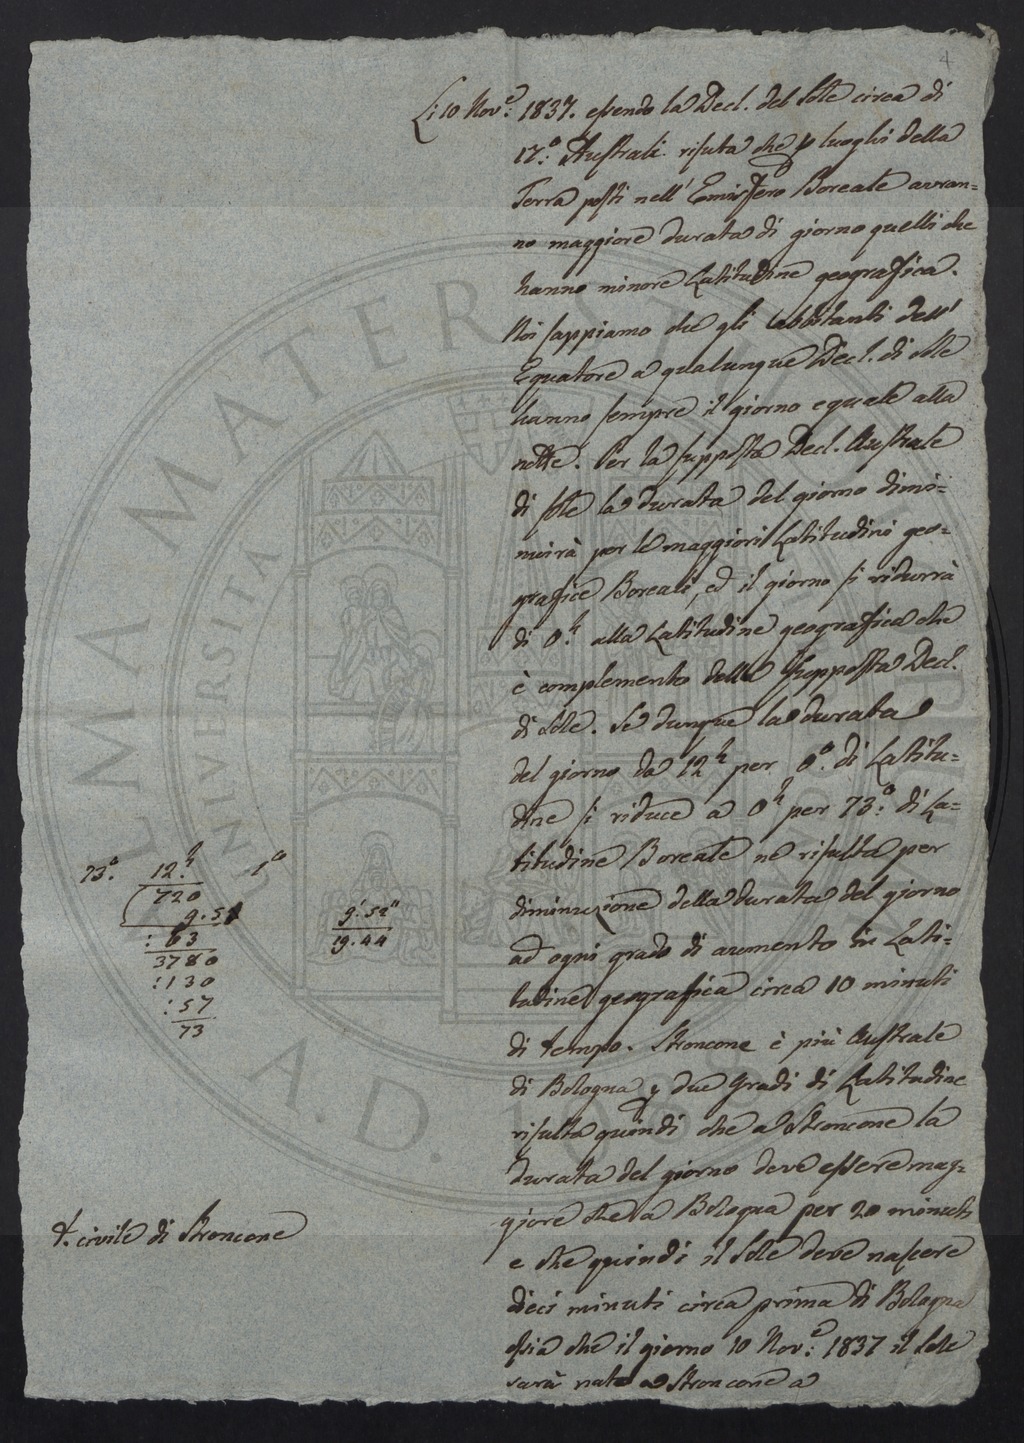 4
Li 10 Nov.e 1837. essendo la Decl. del Sole circa di
17.° Australi risulta che p luoghi della
Terra posti nell'Emisfero Boreale avran=
no maggiore durata di giorno quelli che
hanno minore Latitudine geografica.
Noi sappiamo che gli abbitanti dell'
Equatore a qualunque Decl. di Sole
hanno sempre il giorno eguale alla
notte. Per la supposta Decl. Australe
di Sole la durata del giorno dimi=
nuirà per le maggiori Latitudini geo=
grafice Boreali, ed il giorno si ridurrà
di 0.h alla Latitudine geografica che
è complemento della supposta Decl.
di Sole. Se dunque la durata
del giorno da 12h per 0.° di Latitu=
dine si riduce a 0h per 73.° di La=
titudine Boreale ne risulta per
diminuzione della durata del giorno
ad ogni grado di aumento in Lati=
tudine geografica circa 10 minuti
di tempo. Stroncone è più Australe
di Bologna di due gradi di Latitudine
risulta quindi che a Stroncone la
durata del giorno deve essere mag=
giore che a Bologna per 20 minuti
e che quindi il Sole deve nascere
dieci minuti circa prima di Bologna
ossia che il giorno 10 Nov.e 1837 il Sole
sarà nato a Stroncone a
73.° 12.h 1°
720
9.51
: 63
3780
:130
:57
73
9.'52"
19.44
t. civile di Stroncone
ALMA MATER STUDIORUM
UNIVERSITÀ
A.D. 1088